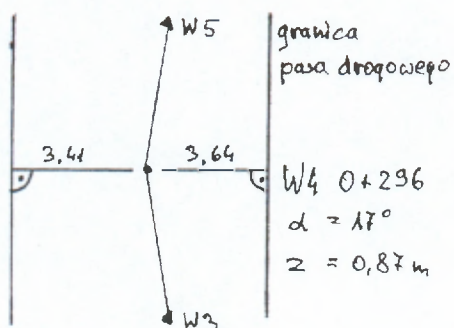 W5
granica
pasa drogowego
3,41
3,64
W4 0+296
α = 17°
z = 0,87 m
W3